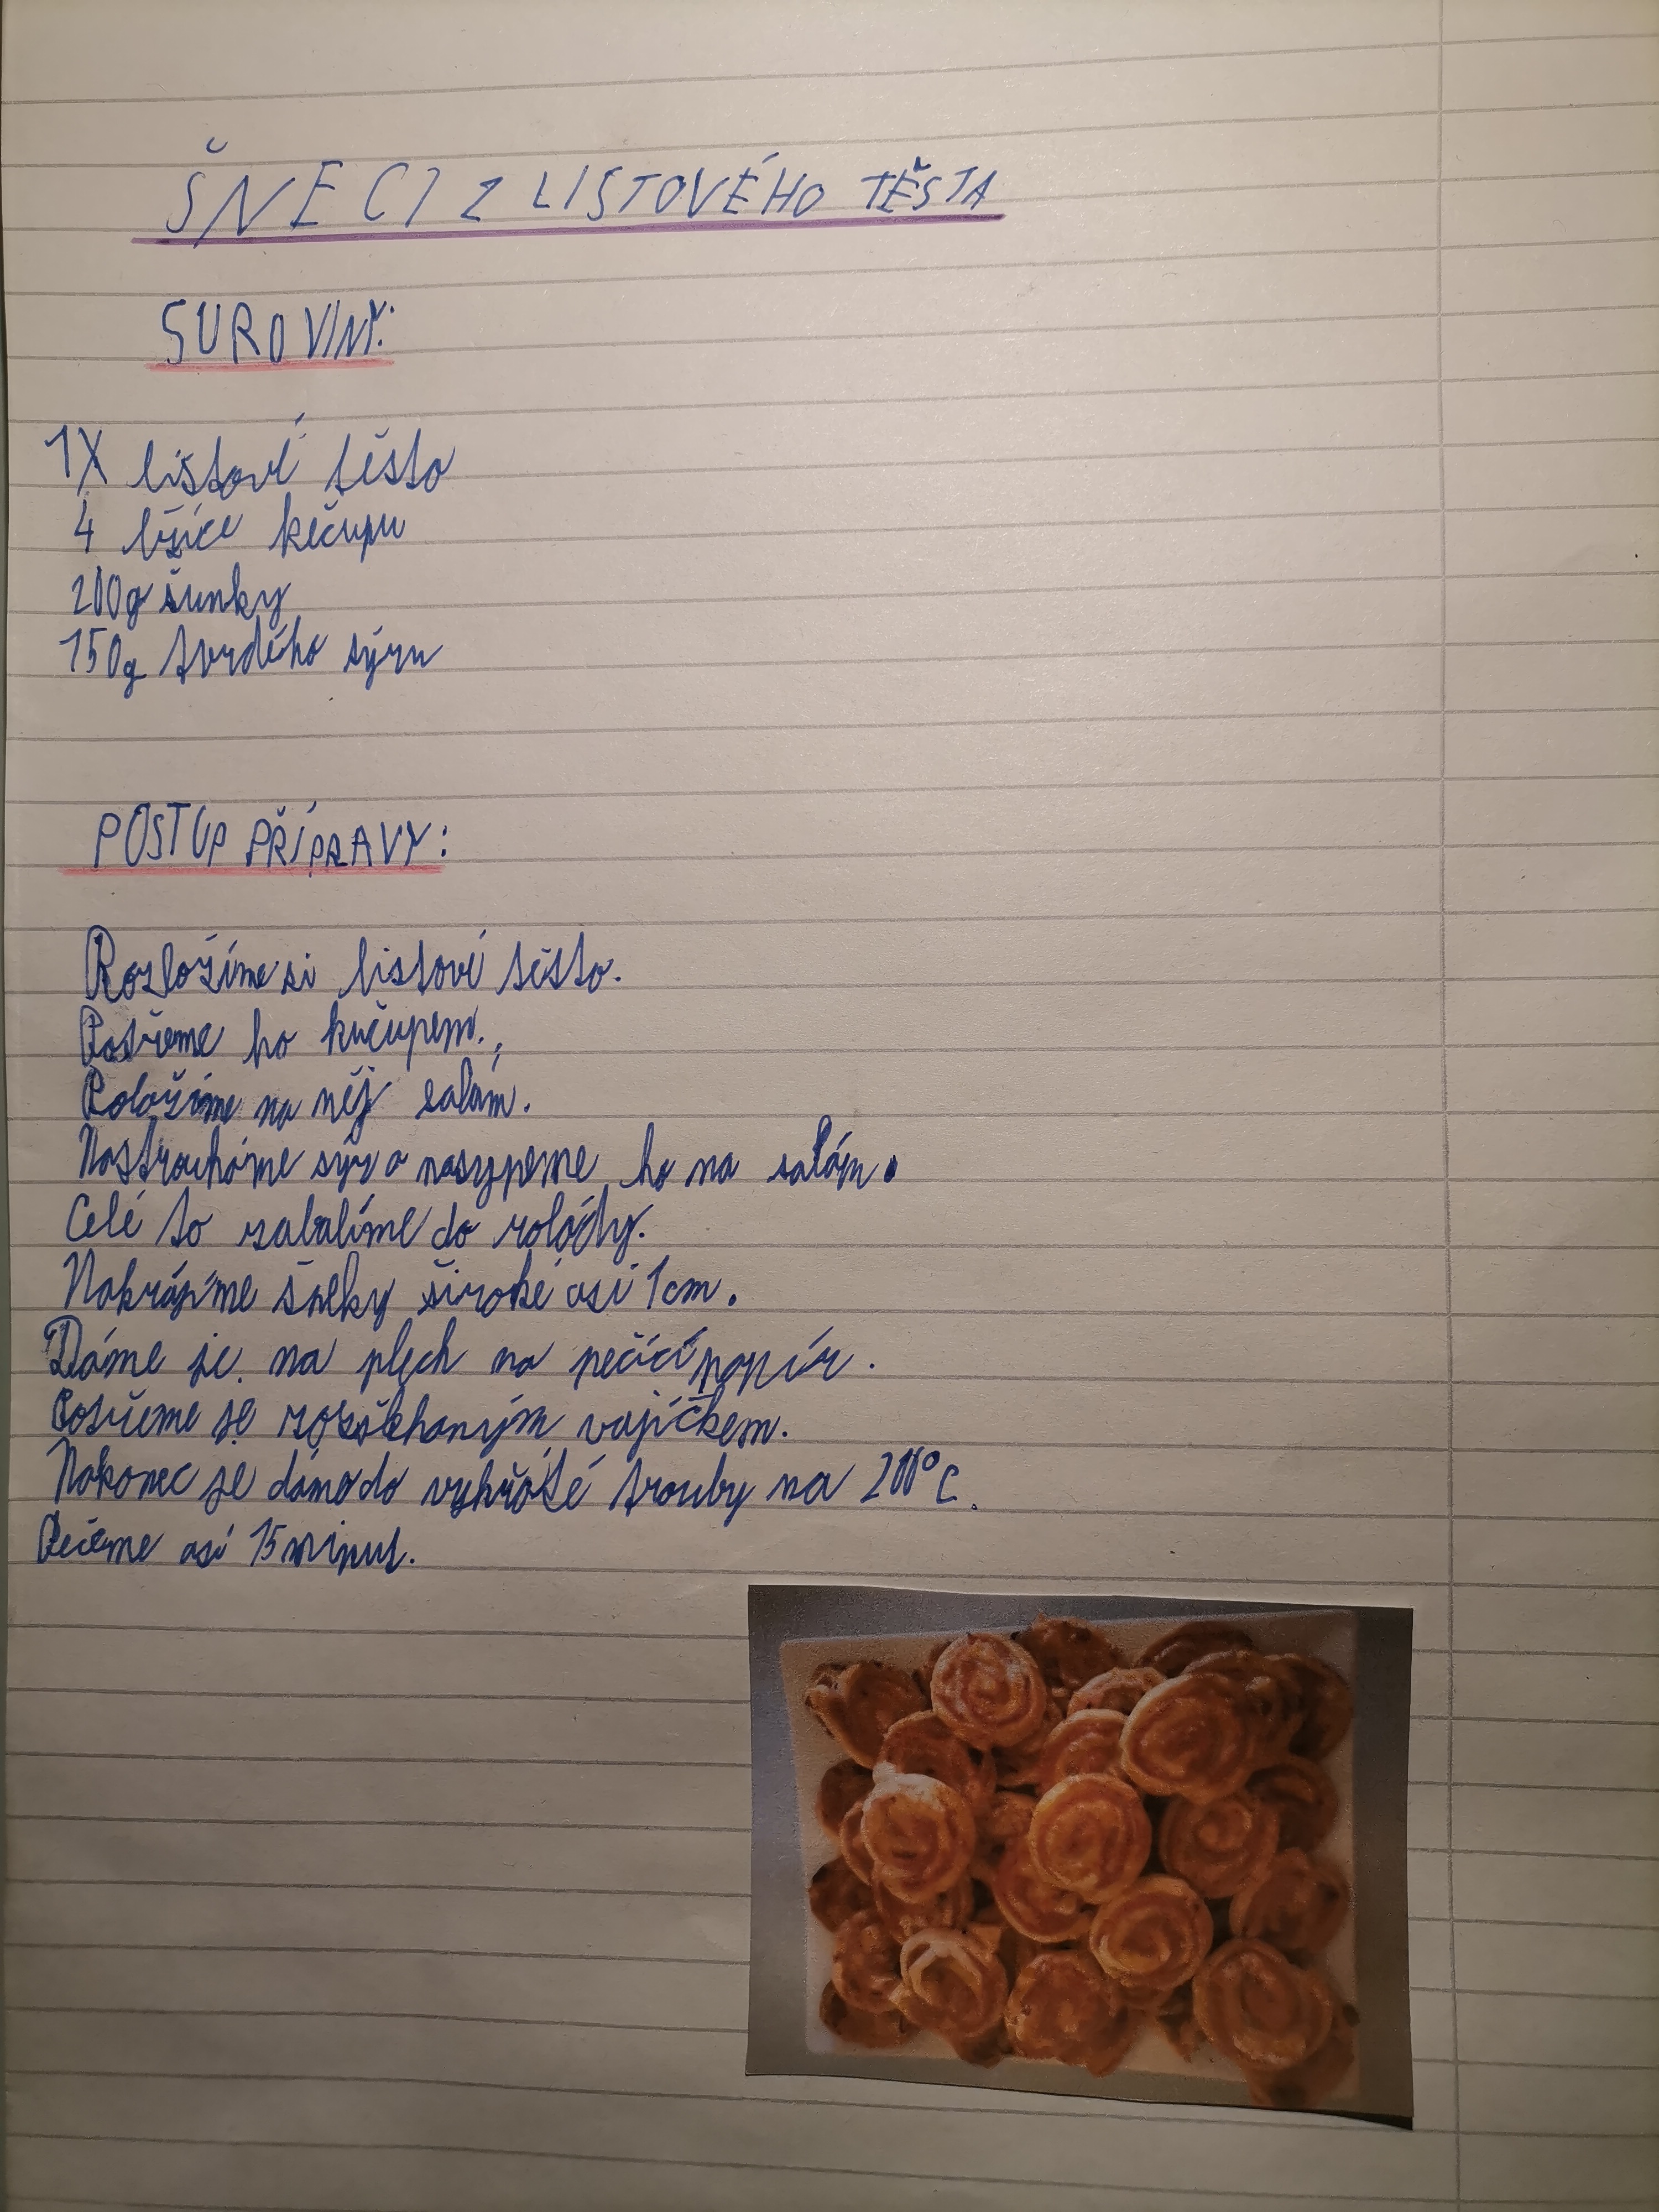 ŠNECI Z LISTOVÉHO TĚSTA
SUROVINY:
1X listové těsto
4 lžíce kečupu
200g šunky
150g tvrdého sýru
POSTUP PŘÍPRAVY:
Rozložíme si listové těsto.
Potřeme ho kečupem.
Položíme na něj salám.
Nastroucháme sýr a nasypeme ho na salám.
Celé to zabalíme do rolády.
Nakrájíme šneky široké asi 1cm.
Dáme je na plech na pečící papír.
Potřeme je rozšlehaným vajíčkem.
Nakonec je dáme do vyhřáté trouby na 200°C.
Pečeme asi 15 minut.